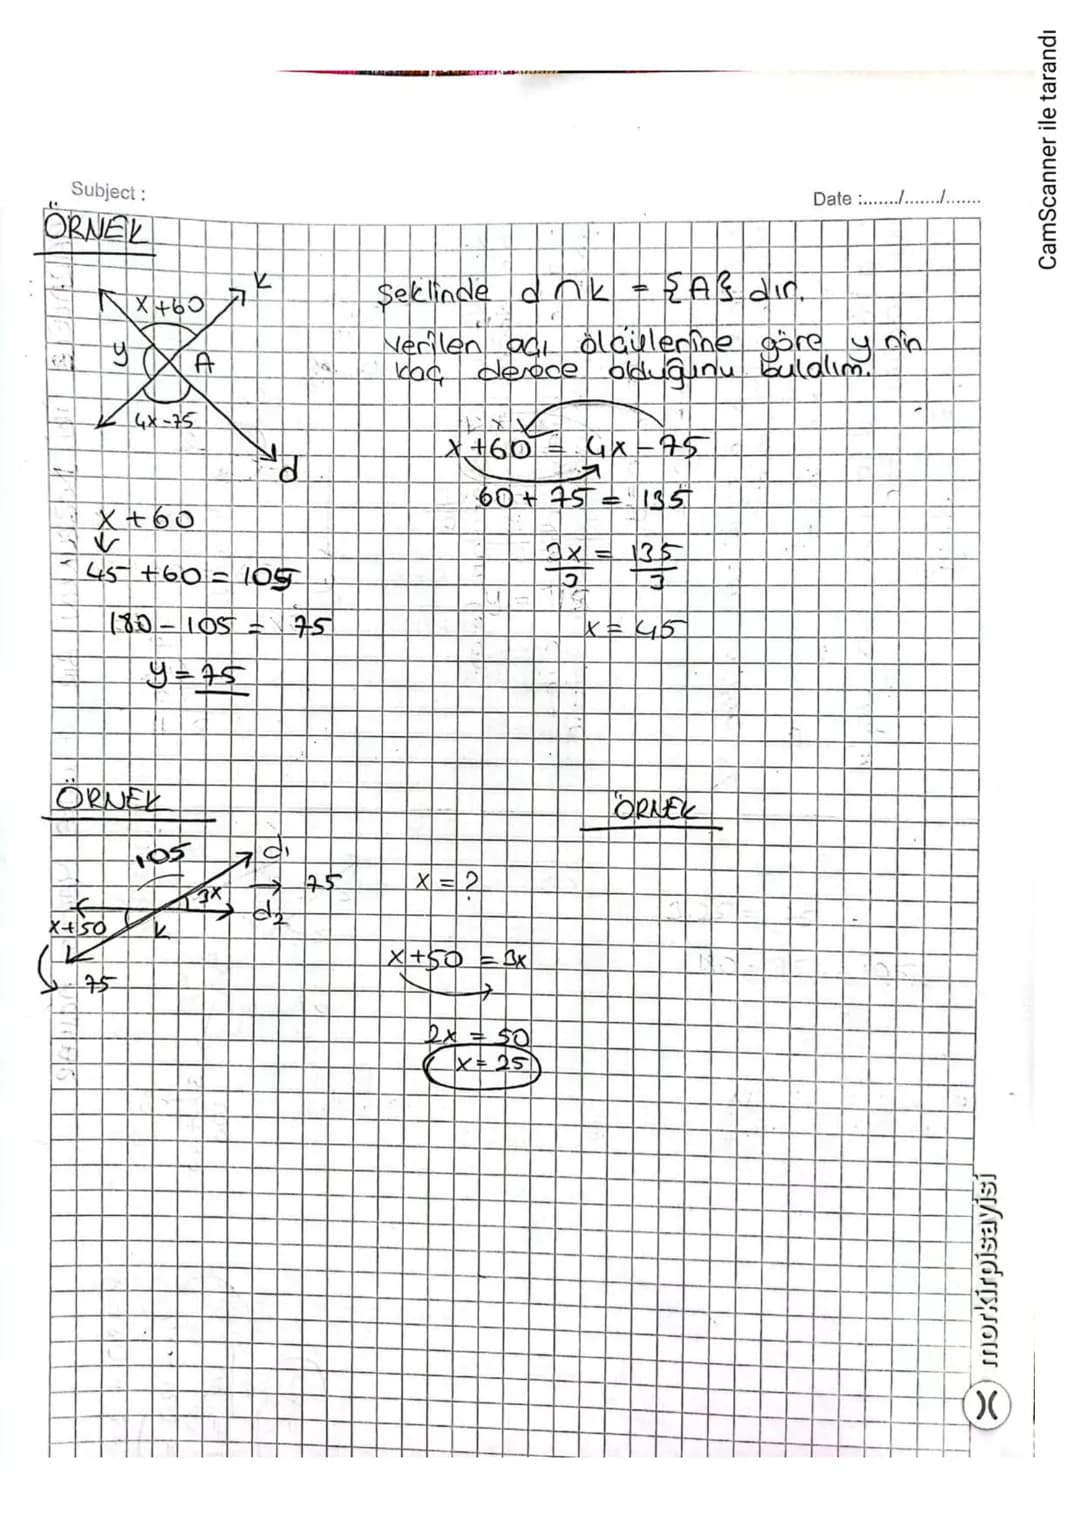 CamScanner ile tarandı
Subject :
Date :......./......./.......
ÖRNEK
x+60
k
y
A
4x-75
d
Şeklinde d∩k = {A} dır.
verilen açı ölçülerine göre y nin
kaç derece olduğunu bulalım.
x+60 = 4x-75
60+75 = 135
3x = 135
3 3
x = 45
x+60
45+60 = 105
180-105 = 75
y = 75
ÖRNEK
105
d1
3x → 75
d2
x+50
k
75
x = ?
x+50 = 3x
2x = 50
x = 25
ÖRNEK
morkirpisayisi